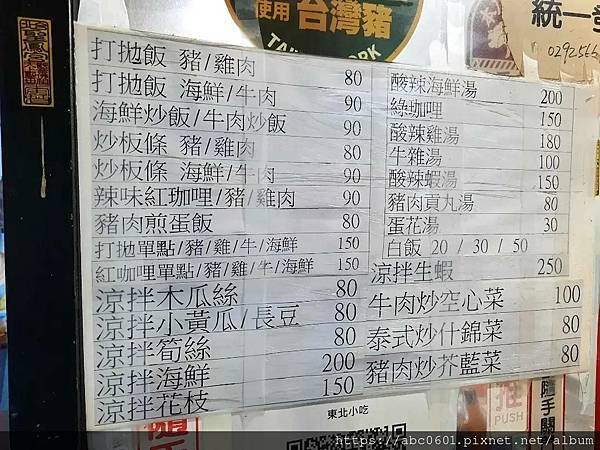 使用 台灣豬
統一
打拋飯 豬/雞肉 80
打拋飯 海鮮/牛肉 90
海鮮炒飯/牛肉炒飯 90
炒板條 豬/雞肉 80
炒板條 海鮮/牛肉 90
辣味紅珈哩/豬/雞肉 90
豬肉煎蛋飯 80
打拋單點/豬/雞/牛/海鮮 150
紅咖哩單點/豬/雞/牛/海鮮 150
涼拌木瓜絲 80
涼拌小黃瓜/長豆 80
涼拌筍絲 80
涼拌海鮮 200
涼拌花枝 150
酸辣海鮮湯 200
綠珈哩 150
酸辣雞湯 180
牛雜湯 100
酸辣蝦湯 150
豬肉貢丸湯 80
蛋花湯 30
白飯 20 / 30 / 50
涼拌生蝦 250
牛肉炒空心菜 100
泰式炒什錦菜 80
豬肉炒芥藍菜 80
東北小吃
推
PUSH
隨手關
隨
https://abc0601.pixnet.net/album